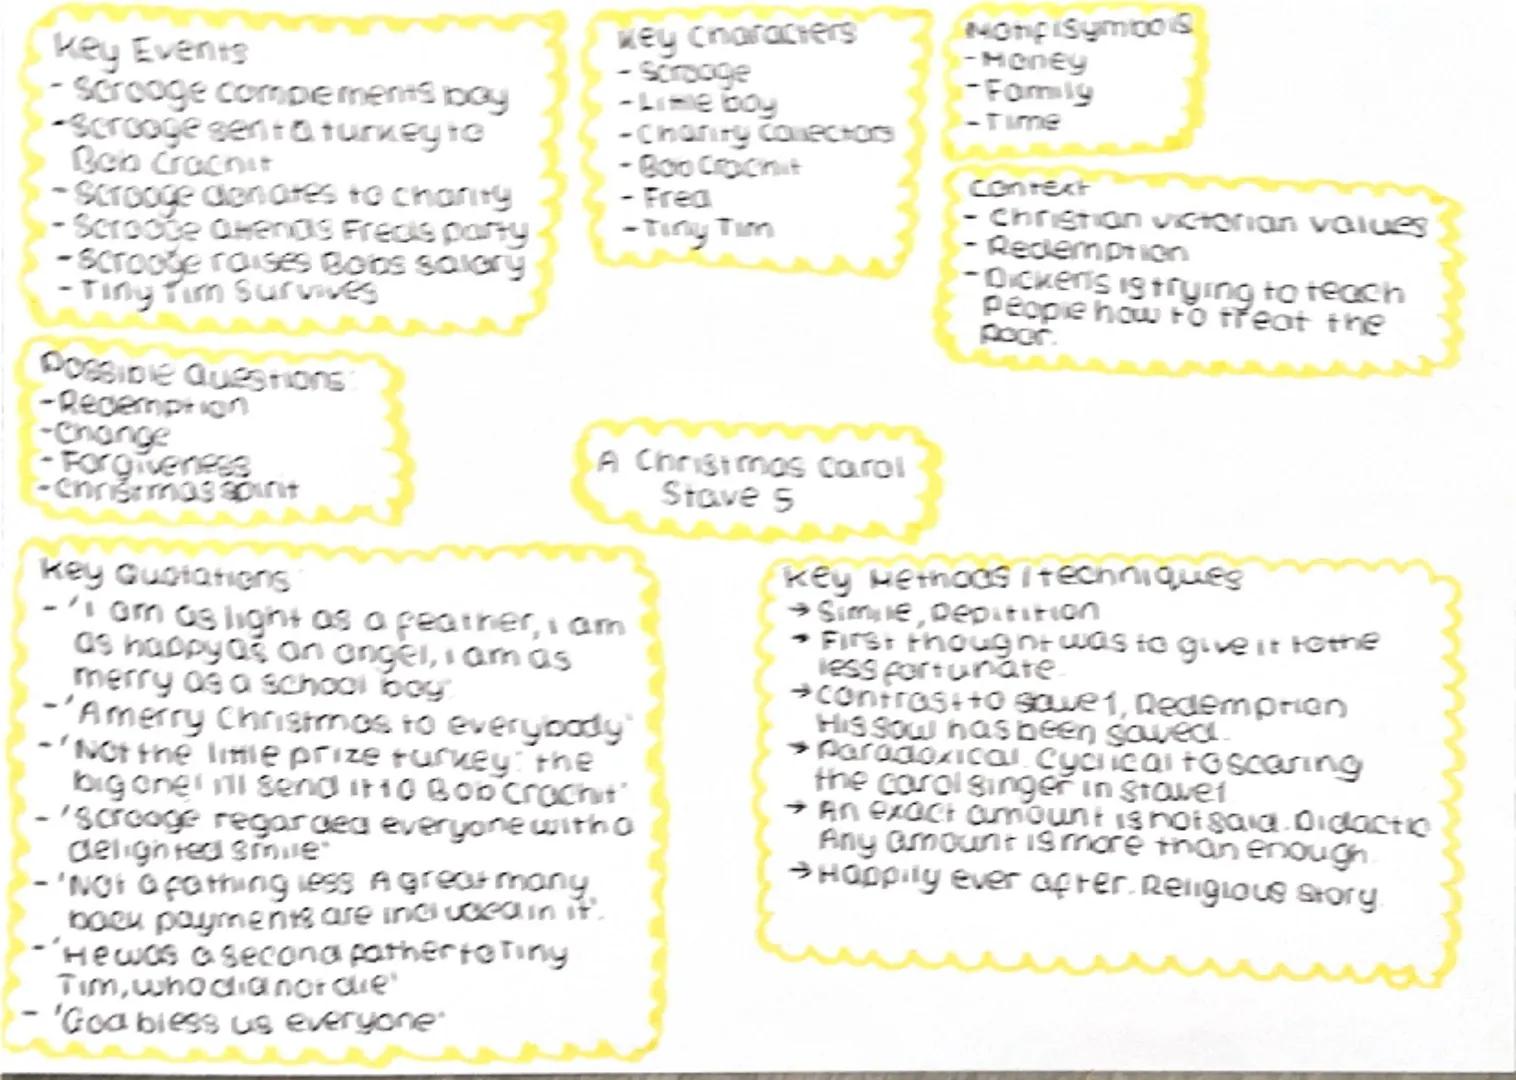 Key Events
- Scrooge compements boy
- Scrooge sent a turkey to
Bob Crachit
- Scrooge donates to charity
- Scrooge attends Freds party
- Scrooge raises Bobs salary
- Tiny Tim Survives
Key Characters
- Scrooge
- Little boy
- Charity Collectors
- Bob Crachit
- Fred
- Tiny Tim
Motif/Symbols
- Money
- Family
- Time
Context
- Christian victorian values
- Redemption
- Dickens is trying to teach
people how to treat the
poor.
Possible Questions:
- Redemption
- Change
- Forgiveness
- Christmas spirit
A Christmas Carol
Stave 5
Key Quotations
- 'I am as light as a feather, I am
as happy as an angel, I am as
merry as a school boy'
- 'A merry Christmas to everybody'
- 'Not the little prize turkey: the
big one! I'll send it to Bob Crachit'
- 'Scrooge regarded everyone with a
delighted smile'
- 'Not a fathing less. A great many
back payments are included in it'.
- 'He was a second father to Tiny
Tim, who did not die'
- 'God bless us everyone'
Key Methods / techniques
→ Simile, Repitition
→ First thought was to give it to the
less fortunate.
→ Contrast to stave 1, Redemption
His soul has been saved.
→ Paradoxical. Cyclical to scaring
the carol singer in stave 1
→ An exact amount is not said. Didactic
Any amount is more than enough.
→ Happily ever after. Religious story.